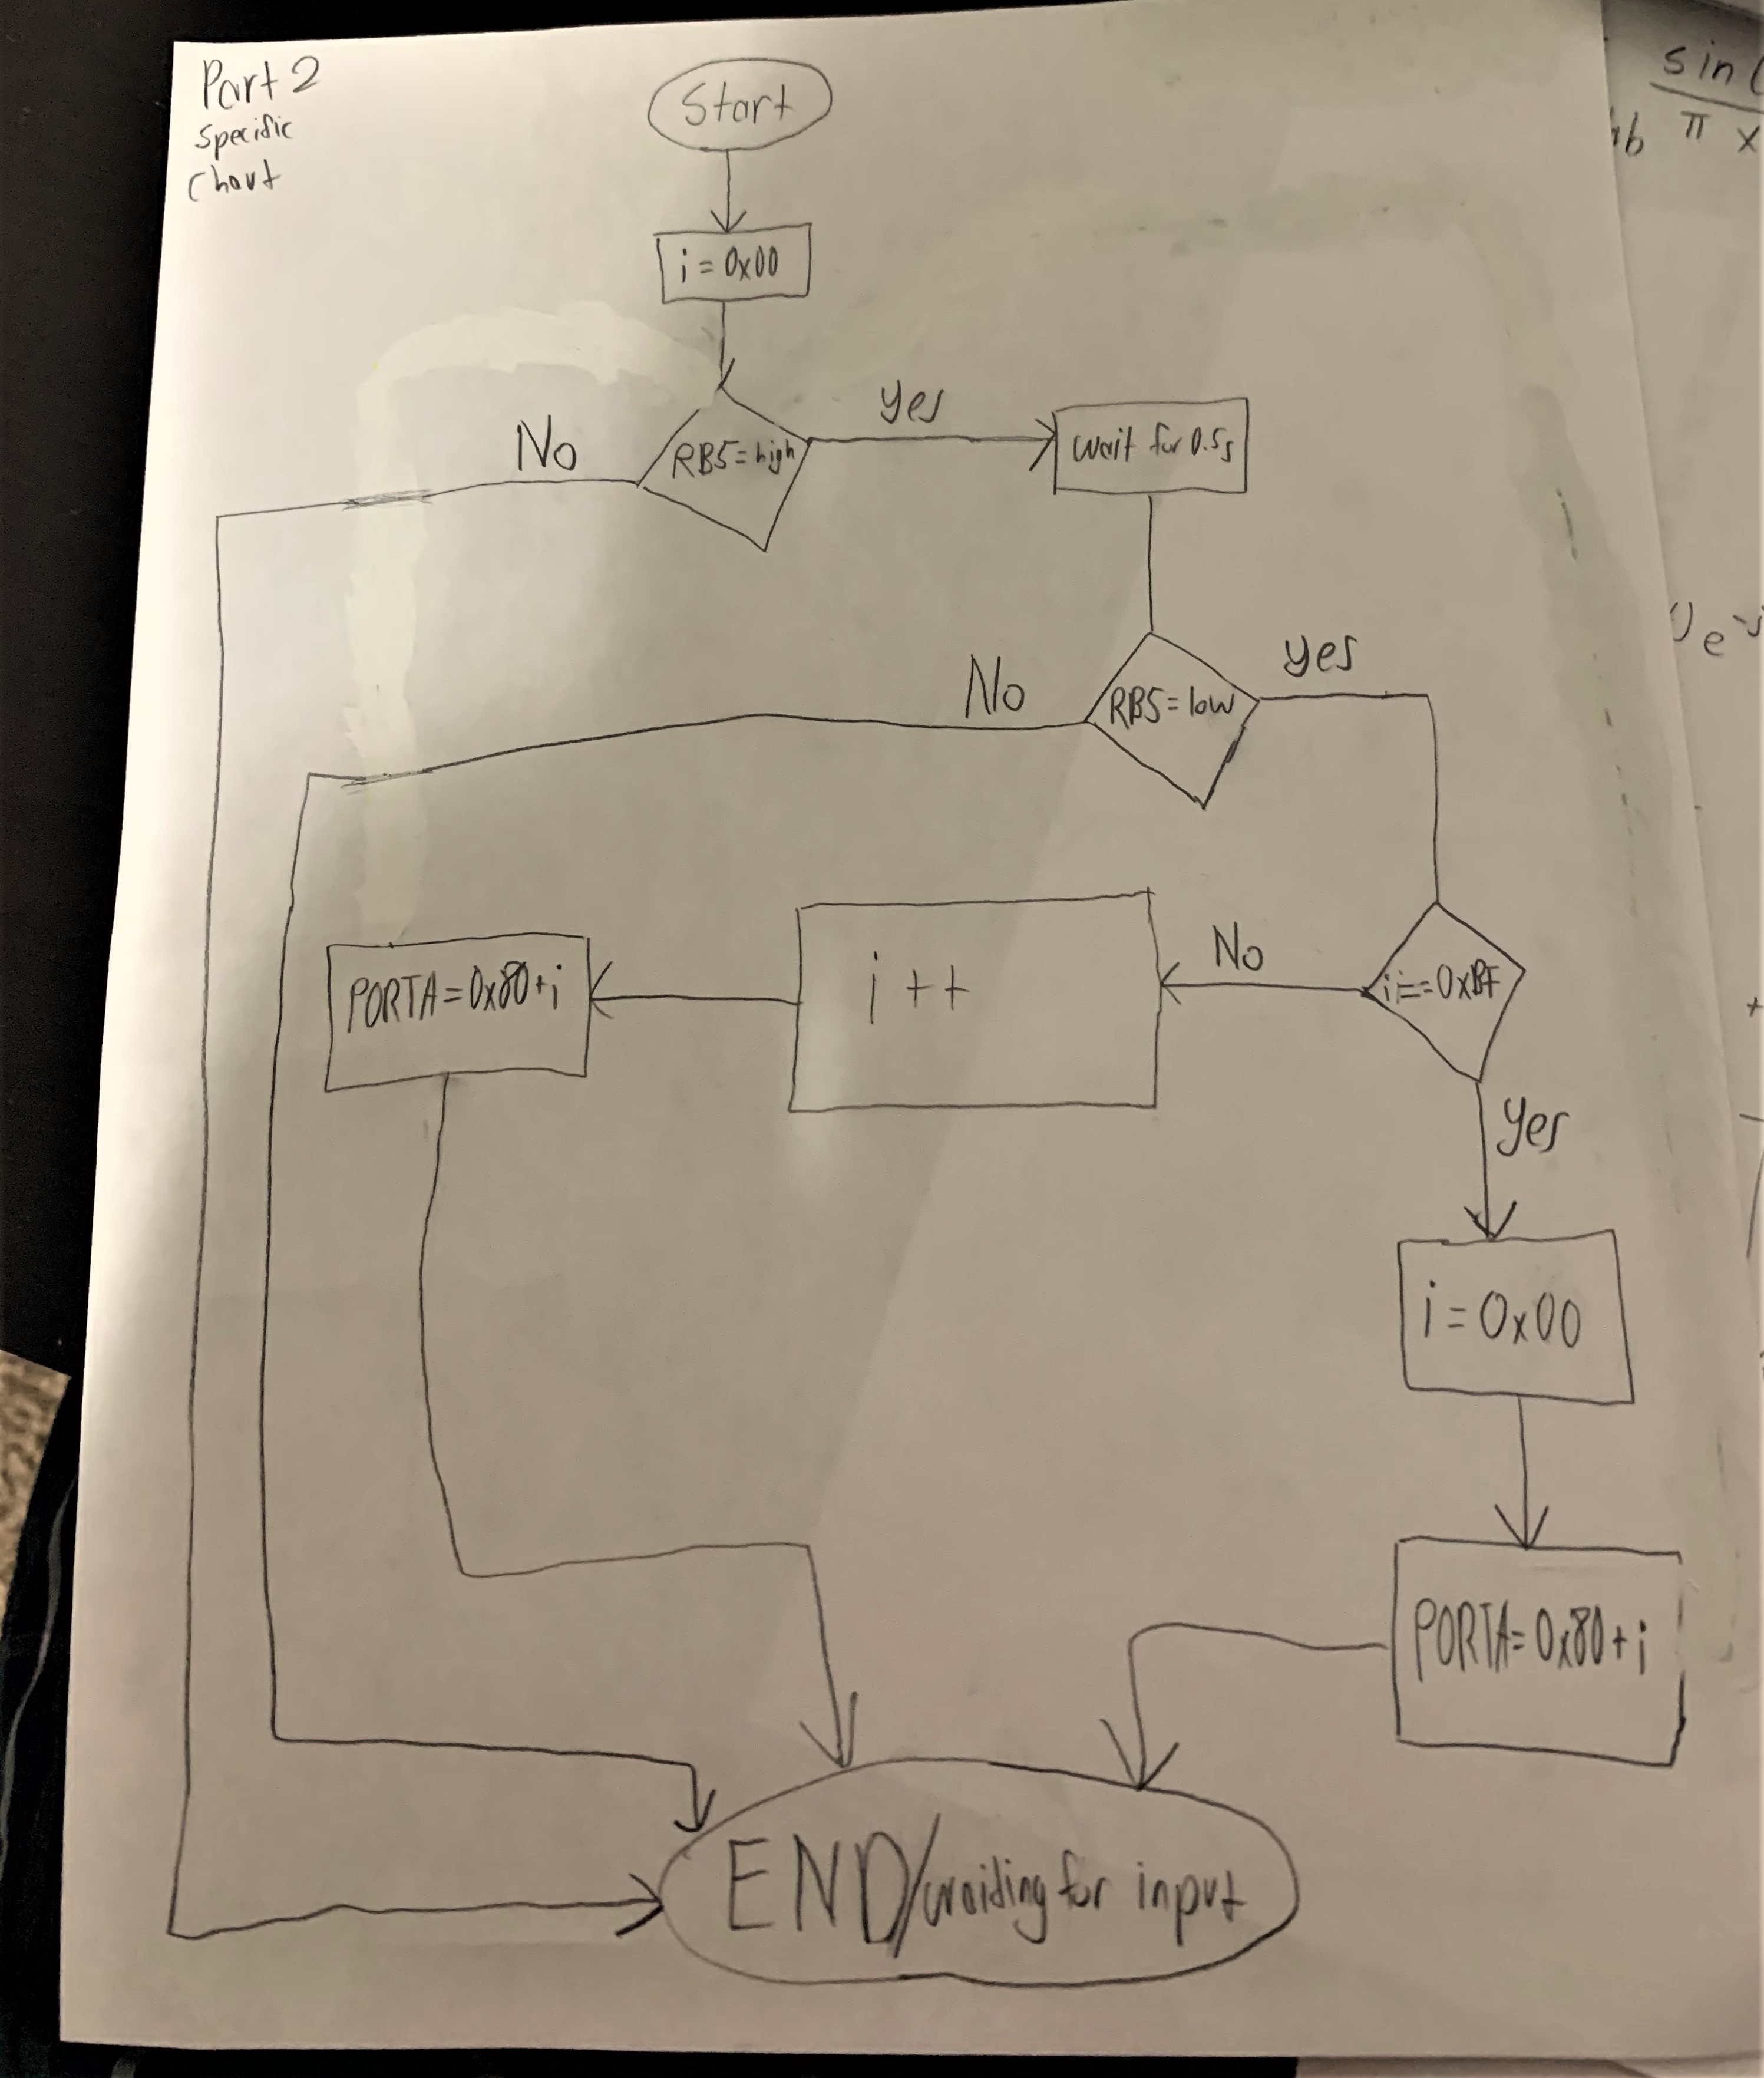 Part 2
Specific
Chart
Start
i = 0x00
RB5=high
No
yes
wait for 0.5s
RB5=low
No
yes
i==0xBF
No
yes
i ++
PORTA=0x80+i
i=0x00
PORTA=0x80+i
END/waiting for input
sin(
π x